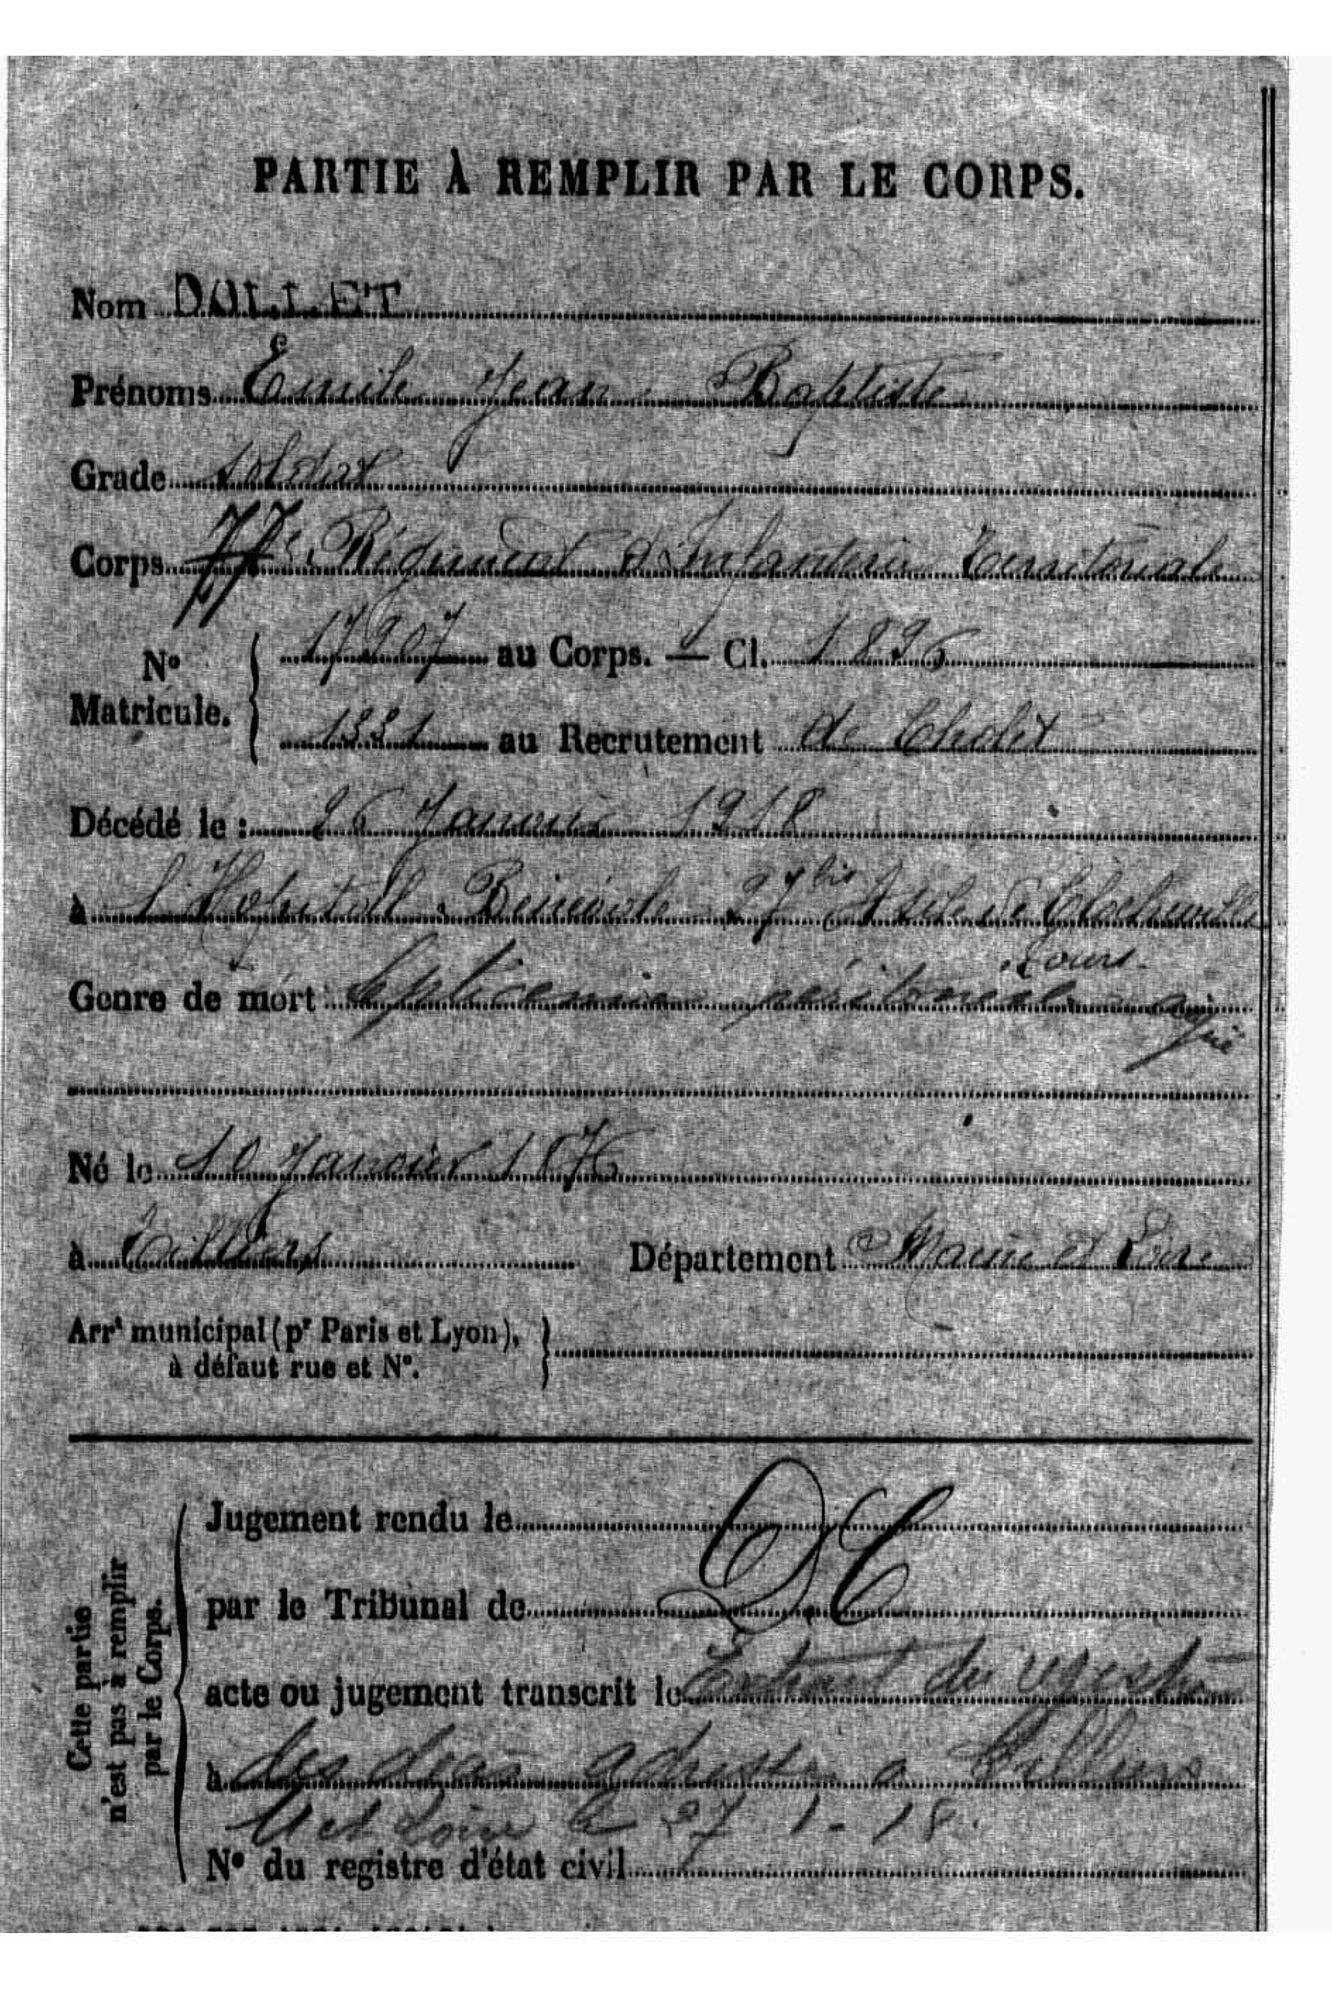 PARTIE À REMPLIR PAR LE CORPS.
Nom DOLLET
Prénoms Emile Jean Baptiste
Grade soldat
Corps 77e Régiment d'Infanterie Territoriale
No Matricule. { 17907 au Corps. — Cl. 1896
1331 au Recrutement de Cholet
Décédé le : 26 Janvier 1918
à l'Hopital Bénévole 27 bis Asile de Clocheville
Tours
Genre de mort Septicémie péritonéale aigüe
Né le 10 Janvier 1876
à Tilliers Département Maine et Loire
Arrt municipal (pr Paris et Lyon), }
à défaut rue et No.
Cette partie
n'est pas à remplir
par le Corps.
Jugement rendu le
par le Tribunal de
DC
acte ou jugement transcrit le Extrait du registre
à des décès adressé a Tilliers
M et Loire le 27-1-18.
No du registre d'état civil